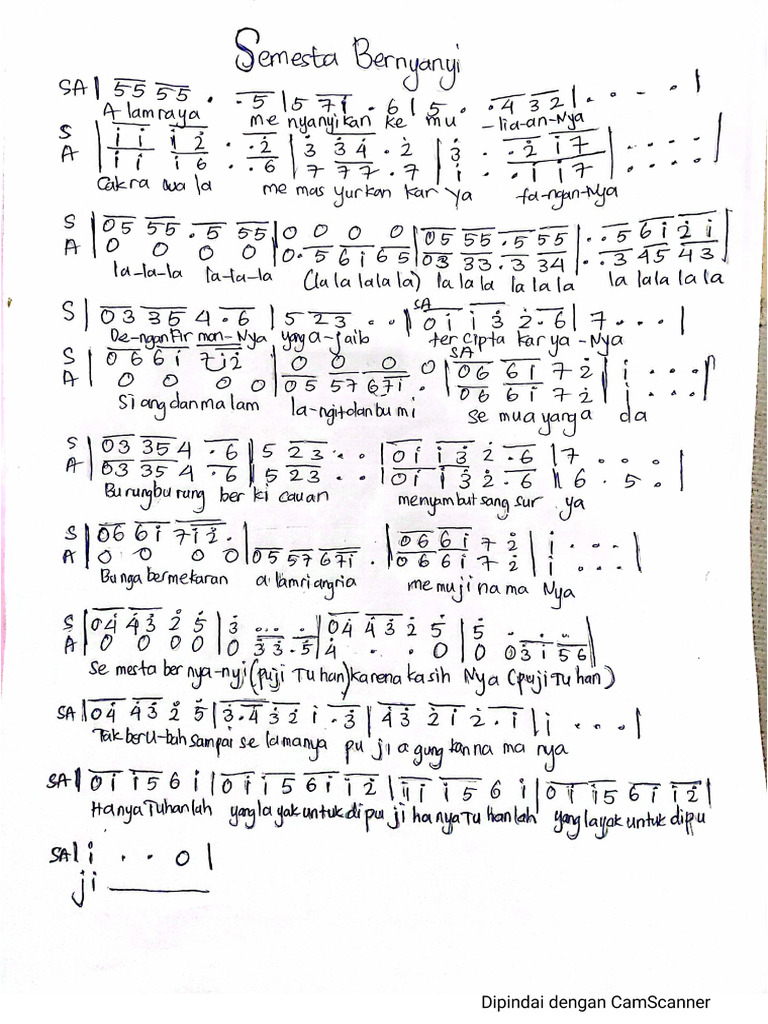 Semesta Bernyanyi
SA | 55 55 . . 5 | 5 7 1̇ . 6 | 5 . . 4 3 2 | . . . . |
Alamraya me nyanyikan ke mu -lia-an-Nya
S | 1̇ 1̇ 1̇ 2̇ . . 2̇ | 3̇ 3̇ 4̇ . 2̇ | 3̇ . . 2̇ 1̇ 7 | . . . . |
A | 1̇ 1̇ 1̇ 6 . . 6 | 7 7 7 . 7 | 1̇ . . 1̇ 1̇ 7 | . . . . |
Cakra wa la me mas yurkan kar ya ta-ngan-Nya
S | 05 55 . 5 55 | 0 0 0 0 | 05 55 . 5 55 | . . 5 6 1̇ 2̇ 1̇ |
A | 0 0 0 0 | 0 . 5 6 1̇ 6 5 | 03 33 . 3 34 | . . 3 45 43 |
la-la-la la-la-la (la la la la la) la la la la la la la la la la la
S | 03 35 4 . 6 | 5 23 . . | SA 01̇ 1̇ 3̇ 2̇ . 6 | 7 . . . |
De-ngan Fir man-Nya yang a-jaib ter cipta karya-Nya
S | 06 61̇ 71̇2̇ | 0 0 0 0 | SA 06 61̇ 7 2̇ | 1̇ . . . |
A | 0 0 0 0 | 05 57 671̇ . | 06 61̇ 7 2̇ | 1̇ . . . |
Siang dan ma lam la-ngit dan bu mi se mua yang a da
S | 03 35 4 . 6 | 5 23 . . | 01̇ 1̇3̇ 2̇ . 6 | 7 . . . |
A | 03 35 4 . 6 | 5 23 . . | 01̇ 1̇3̇ 2̇ . 6 | 6 . 5 . |
Burung burung ber ki cauan menyambut sang sur ya
S | 06 61̇ 71̇2̇ . | 06 61̇ 7 2̇ | 1̇ . . . |
A | 0 0 0 0 | 05 57 671̇ . | 06 61̇ 7 2̇ | 1̇ . . . |
Bunga bermekaran alam riang ria me muji nama Nya
S | 04̇ 4̇3̇ 2̇ 5̇ | 3̇ . . . . | 04̇ 4̇3̇ 2̇ 5̇ | 5̇ . . . |
A | 0 0 0 0 | 0 33 . 5 | 4 . . 0 | 0 03 1̇ 56 |
Se mesta ber nya-nyi (puji Tu han) karena kasih Nya (puji Tu han)
SA | 04̇ 4̇3̇ 2̇ 5̇ | 3̇ . 4̇ 3̇ 2̇ 1̇ . 3̇ | 4̇3̇ 2̇1̇ 2̇ . 1̇ | 1̇ . . . |
Tak beru-bah sampai se lamanya pu ji agung kan na ma nya
SA | 01̇ 1̇5 6 1̇ | 01̇ 1̇5 61̇ 1̇2̇ | 1̇1̇ 1̇5 6 1̇ | 01̇ 1̇5 61̇ 1̇2̇ |
Hanya Tuhanlah yang la yak untuk di pu ji hanya Tu hanlah yang layak untuk dipu
SA | 1̇ . . 0 |
ji
Dipindai dengan CamScanner